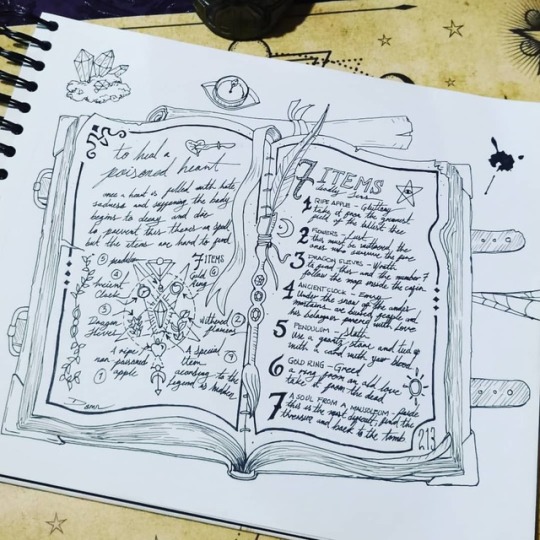 to heal a
poisoned heart
once a heart is filled with hate
sadness and suffering the body
begins to decay and die
to prevent this theres a spell
but the items are hard to find
7 ITEMS
5 pendulum
4 Ancient
Clock
3 Dragon
6 Gold
Ring
2 withered
flowers
1 A ripe
non poisoned
apple
7 A special
Item
according to the
legend is hidden
7 ITEMS
Deadly Sins
1 RIPE APPLE - Gluttony
take it from the
2 FLOWERS - Lust
this must be withered, the
ones who survive the
3 DRAGON - Wrath
to find this and the number 7
follow the map inside the
4 ANCIENT CLOCK - Envy
Under the of the under
are buried people and
his powered with love
5 PENDULUM - Sloth
Use a stone and tied up
with a cord with your blood
6 GOLD RING - Greed
a ring from an old love
take it from the dead
7 A SOUL FROM A MAUSOLEUM - Pride
this is the most difficult, find the
treasure and back to the tomb
213